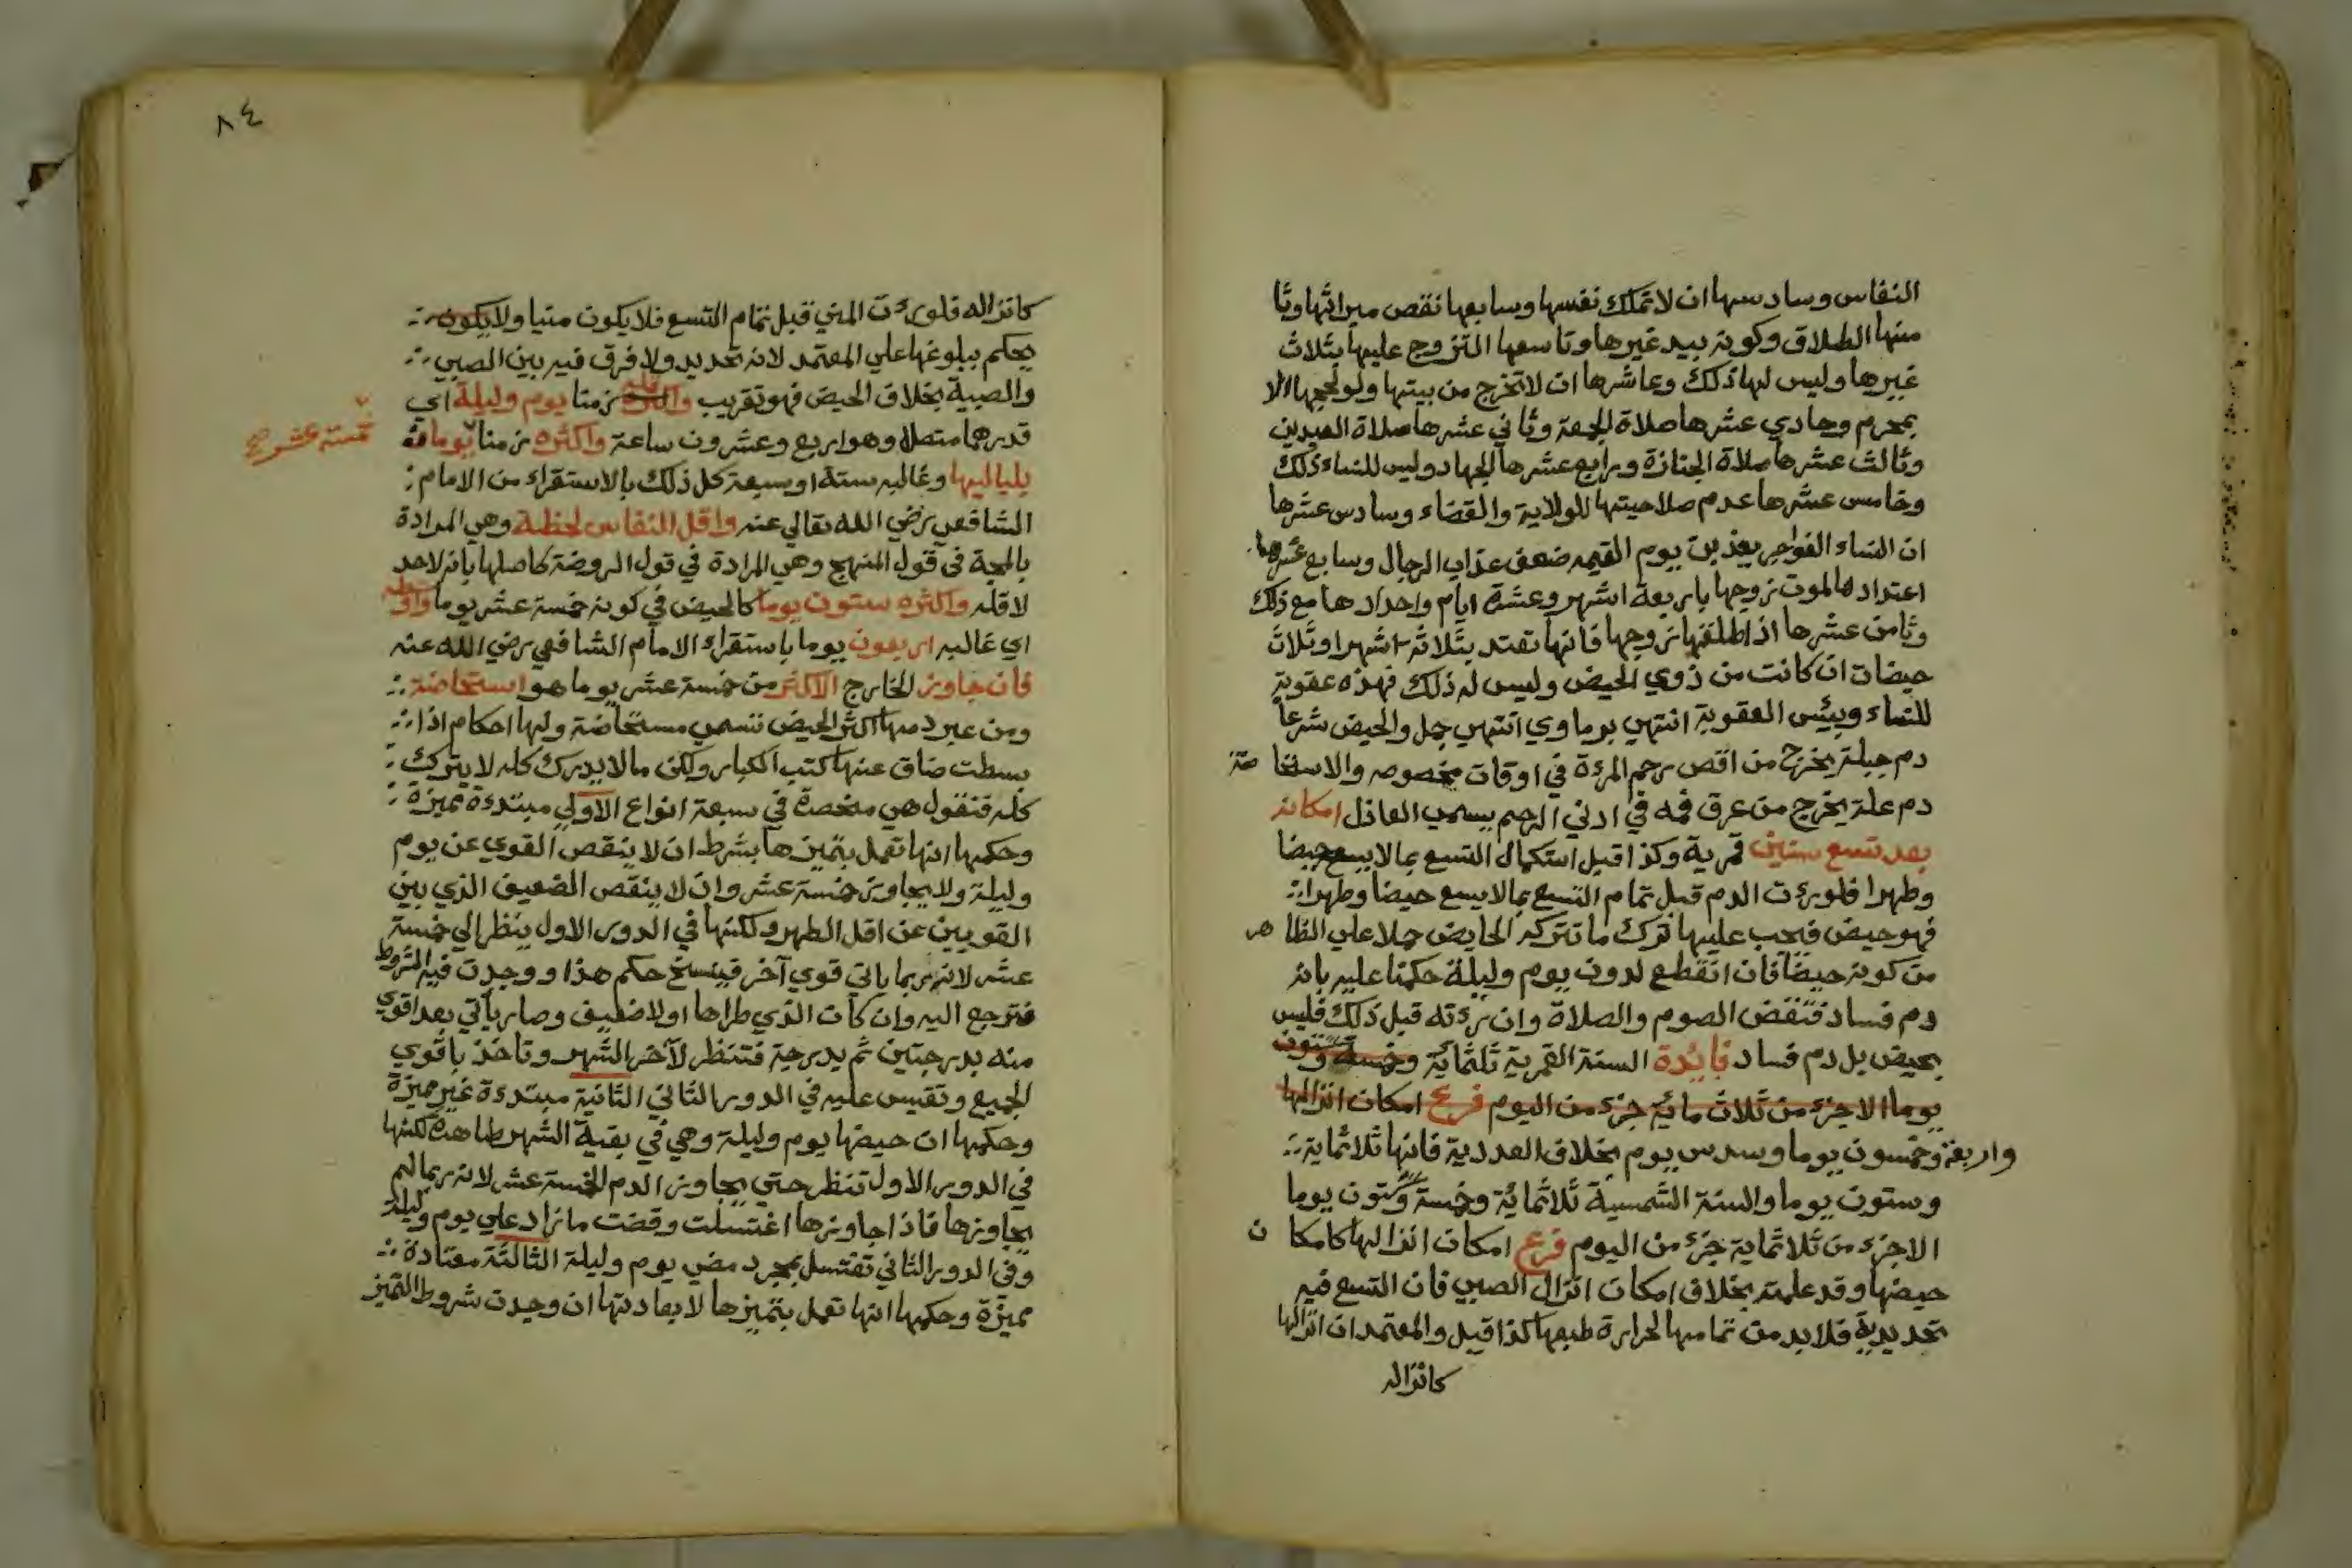 النفاس وسادسها ان لا تملك نفسها وسابعها نقص ميراثها وثا
منها الطلاق وكونه بيد غيرها وتاسعها التزوج عليها بثلاث
غيرها وليس لها ذلك وعاشرها ان لا تخرج من بيتها ولو لحجها الا
بمحرم وحادي عشرها صلاة الجمعة وثاني عشرها صلاة العيدين
وثالث عشرها صلاة الجنازة ورابع عشرها الجهاد وليس للنساء ذلك
وخامس عشرها عدم صلاحيتها للولاية والقضاء وسادس عشرها
ان النساء الفواجر يعذبن يوم القيمه ضعف عذاب الرجال وسابع عشرها
اعتدادها لموت زوجها باربعة اشهر وعشرة ايام واحدادها مع ذلك
وثامن عشرها اذا طلقها زوجها فانها تعتد بثلاثة اشهر او ثلاث
حيضات ان كانت من ذوي الحيض وليس له ذلك فهذه عقوبة
للنساء وبئس العقوبة انتهي يوماوي انتهي جمل والحيض شرعا
دم جبلة يخرج من اقصي رحم المرءة في اوقات مخصوصه والاستحاضة
دم علة يخرج من عرق فمه في ادني الرحم يسمي العاذل امكانه
بعد تسع سنين قمرية وكذا قبل استكمال التسع بما لا يسع حيضا
وطهرا فلو رءت الدم قبل تمام التسع بما لا يسع حيضا وطهرا
فهو حيض فيجب عليها ترك ما تتركه الحايض حملا علي الظاهر
من كونه حيضا فان انقطع لدون يوم وليلة حكمنا عليه بانه
دم فساد فتقض الصوم والصلاة وان رءته قبل ذلك فليس
بحيض بل دم فساد فايدة السنة القمرية ثلثماية وخمسة وستون
يوما الا جزء من ثلاث ماية جزء من اليوم فرع امكان انزالها
واربعة وخمسون يوما وسدس يوم بخلاف العددية فانها ثلاثماية
وستون يوما والسنة الشمسية ثلاثماية وخمسة وستون يوما
الا جزء من ثلاثماية جزء من اليوم فرع امكان انزالها كامكان
حيضها وقد علمته بخلاف امكان انزال الصبي فان التسع فيه
تحديدية فلا بد من تمامها لحرارة طبعها كذا قيل والمعتمد ان انزالها
كانزاله
٨٤
كانزاله فلو رءت المني قبل تمام التسع فلا يكون منيا ولا يكون
يحكم ببلوغها علي المعتمد لانه تحديد ولا فرق فيه بين الصبي
والصبية بخلاف الحيض فهو تقريب واقله زمنا يوم وليلة اي
قدرهما متصلا وهو اربع وعشرون ساعة واكثره زمنا يوما
خمسة عشر صح
بلياليها وغالبه ستة او سبعة كل ذلك بالاستقراء من الامام
الشافعي رضي الله تعالي عنه واقل النفاس لحظة وهي المرادة
بالمجة في قول المنهج وهي المرادة في قول الروضة كاصلها بانه لا حد
لاقله واكثره ستون يوما كالحيض في كونه خمسة عشر يوما
اي غالبه اربعون يوما باستقراء الامام الشافعي رضي الله عنه
فان جاوز الخارج الاكثر من خمسة عشر يوما هو استحاضة
ومن عبر دمها اكثر الحيض تسمي مستحاضة ولها احكام اذا
بسطت ضاق عنها كتب الكبار ولكن ما لا يدرك كله لا يترك
كله فنقول هي منحصرة في سبعة انواع الاولي مبتدءة مميزة
وحكمها انها تعمل بتميزها بشرط ان لا ينقص القوي عن يوم
وليلة ولا يجاوز خمسة عشر وان لا ينقص الضعيف الذي بين
القويين عن اقل الطهر ولكنها في الدور الاول ينظر الي خمسة
عشر لانه ربما ياتي قوي آخر فينسخ حكم هذا ووجدت فيه الشروط
فترجع اليه وان كان الذي طراها اولا ضعيف وصار ياتي بعد اقوي
منه بدرجتين ثم بدرجة فتنظر لآخر الشهر وتاخذ باقوي
الجميع وتقيس عليه في الدور الثاني الثانية مبتدءة غير مميزة
وحكمها ان حيضها يوم وليلة وهي في بقية الشهر طاهرة لكنها
في الدور الاول تنظر حتي يجاوز الدم الخمسة عشر لانه ربما لم
يجاوزها فاذا جاوزها اغتسلت وقضت ما زاد علي يوم وليلة
وفي الدور الثاني تغتسل بمجرد مضي يوم وليلة الثالثة معتادة
مميزة وحكمها انها تعمل بتميزها لا بعادتها ان وجدت شروط التميز